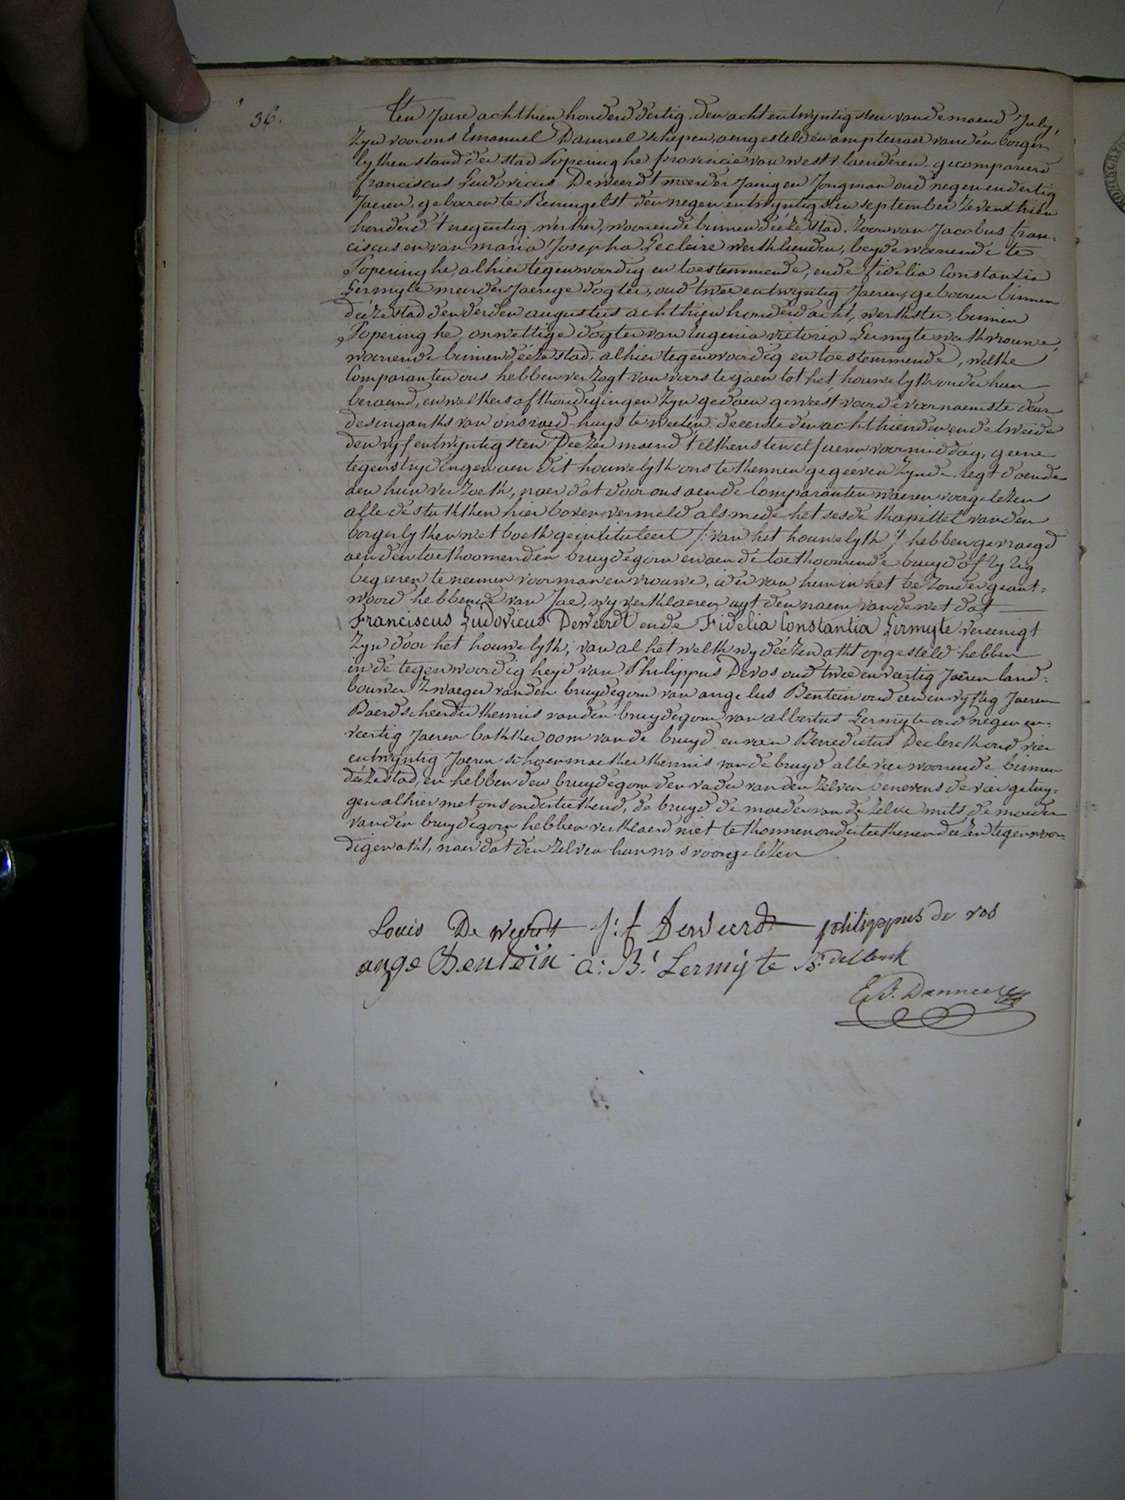 36.
Ten Jaere achthien honderd dertig, den acht en twyntigsten van de maend July,
Zyn voor ons Emanuel Danneel schepen, aengesteld en amptenaer van den borger-
lyken stand der stad Poperinghe provincie van west vlaenderen gecompareerd
franciscus Ludovicus Deweerdt meerderjaerigen Jongman oud negen en dertig
Jaeren, geboren te Reningelst den negen en twyntigsten september zeventhien
honderd t'negentig, werker, woonende binnen deéze stad. zoon van Jacobus fran-
ciscus en van maria Josepha Lecleire werklieden, beyde woonende te
Poperinghe, alhier tegenwoordig en toestemmende, ende fidelia Constantia
Lermyte meerderjaerige dogter, oud twee en twyntig Jaeren, geboren binnen
deéze stad den derden augustus achthien honderd acht, werkster, binnen
Poperinghe, onwettige dogter van Eugenia victoria Lermyte werkvrouwe,
woonende binnen deéze stad, alhier tegenwoordig en toestemmende, welke
Comparanten ons hebben verzogt van voorts te gaen tot het houwelyk onder hun
beraemd, en welkers afkondigingen zyn gedaen geweest voor de voornaemste deur
des inganks van ons raed-huys te weeten: de eerste den achthienden en de tweede
den vyf en twyntigsten deézer maend t'elkens ten elf ueren voormiddag, geene
tegenstrydingen aen dit houwelyk ons te kennen gegeeven zynde, regt doende
aen hun verzoek, naer dat door ons aen de Comparanten waeren voorgelezen
alle de stukken hier boven vermeld als mede het sesde kapittel van den
borgerlyken wetboek geintituleert /: van het houwelyk :/ hebben gevraegd
aen den toekoomenden bruydegom en aen de toekoomende bruyd of zy zig
begeeren te neemen voor man en vrouwe, ider van hun in het bezonder geant-
woord hebbende van Jae, wy verklaeren uyt den naem van de wet dat
Franciscus Ludovicus Deweerdt ende Fidelia Constantia Lermyte vereenigt
zyn door het houwelyk, van al het welk wy deézen akt opgesteld hebben
in de tegenwoordigheyd van Philippus Devos oud twee en veertig Jaeren land-
bouwer zwaeger van den bruydegom van angelus Bentein oud een en vyftig Jaeren
Baerdscheerder kennis van den bruydegom van albertus Lermyte oud negen en-
veertig Jaeren bakker oom van de bruyd en van Benedictus Declerck oud vier
en twyntig Jaeren schoenmaeker kennis van de bruyd alle vier woonende binnen
deéze stad, en hebben den bruydegom den vader van den zelven benevens de vier getuy-
gen alhier met ons onderteekend, de bruyd de moeder van de zelve mits de moeder
van den bruydegom hebben verklaerd niet te konnen onderteekenen deézen tegenwoor-
digen akt, naer dat den zelven hun was voorgelezen
Louis De Weerdt J: f Deweerdt philippus de vos
ange Benteïn a: B: Lermÿte B: declerck
E. J. Danneel